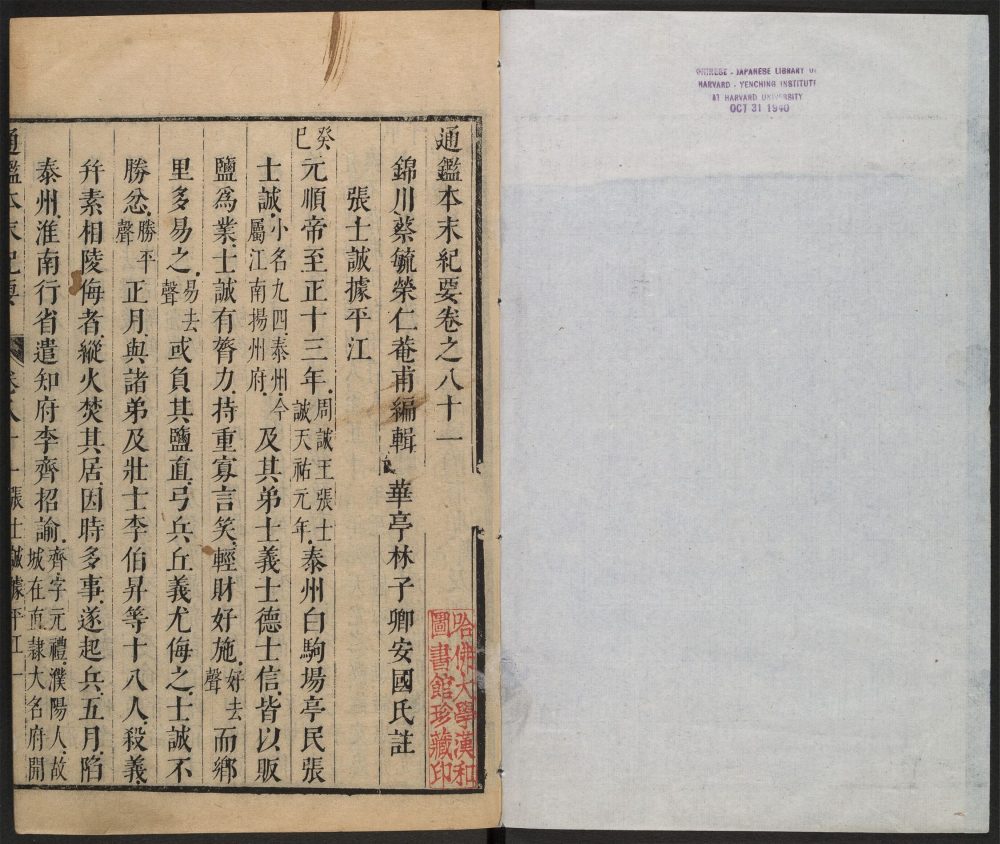 CHINESE - JAPANESE LIBRARY OF
HARVARD - YENCHING INSTITUTE
AT HARVARD UNIVERSITY
OCT 31 1940
通鑑本末紀要卷之八十一
錦川蔡毓榮仁菴甫編輯 華亭林子卿安國氏註
張士誠據平江
癸巳元順帝至正十三年周誠王張士誠天祐元年泰州白駒場亭民張
士誠小名九四泰州今屬江南揚州府及其弟士義士德士信皆以販
鹽爲業士誠有膂力持重寡言笑輕財好施好去聲而鄉
里多易之易去聲或負其鹽直弓兵丘義尤侮之士誠不
勝忿勝平聲正月與諸弟及壯士李伯昇等十八人殺義
幷素相陵侮者縱火焚其居因時多事遂起兵五月陷
泰州淮南行省遣知府李齊招諭齊字元禮濮陽人故城在直隸大名府開
通鑑本末紀要 卷八十一 張士誠據平江 一
哈佛大學漢和
圖書館珍藏印